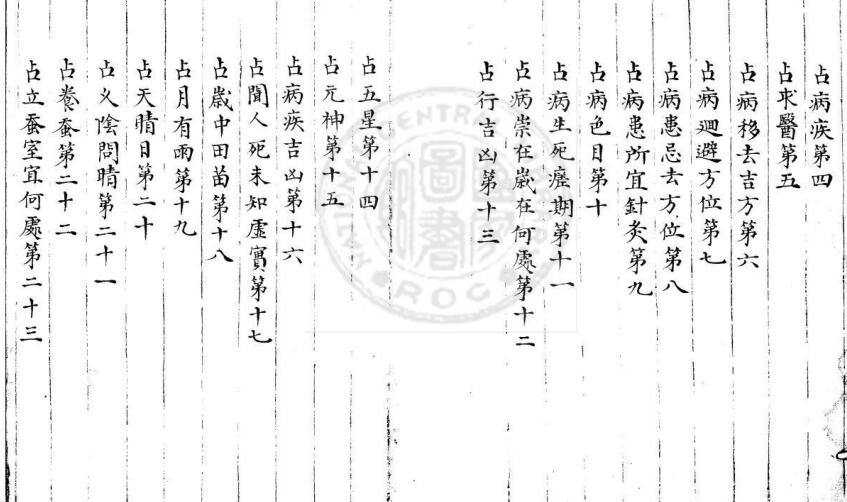 占病疾第四
占求醫第五
占病移去吉方第六
占病廻避方位第七
占病患忌去方位第八
占病患所宜針灸第九
占病色目第十
占病生死瘥期第十一
占病祟在歲在何處第十二
占行吉凶第十三
占五星第十四
占元神第十五
占病疾吉凶第十六
占聞人死未知虛實第十七
占歲中田苗第十八
占月有雨第十九
占天晴日第二十
占乆陰問晴第二十一
占養蚕第二十二
占立蚕室宜何處第二十三
圖書
CENTRAL
ROC